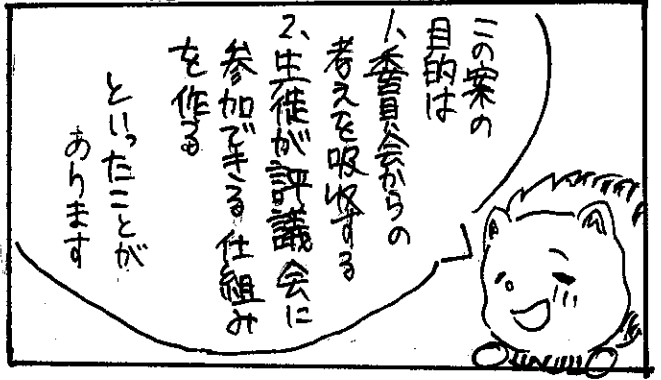 この案の
目的は
1、委員会からの
考えを吸収する
2、生徒が評議会に
参加できる仕組み
を作る
といったことが
あります